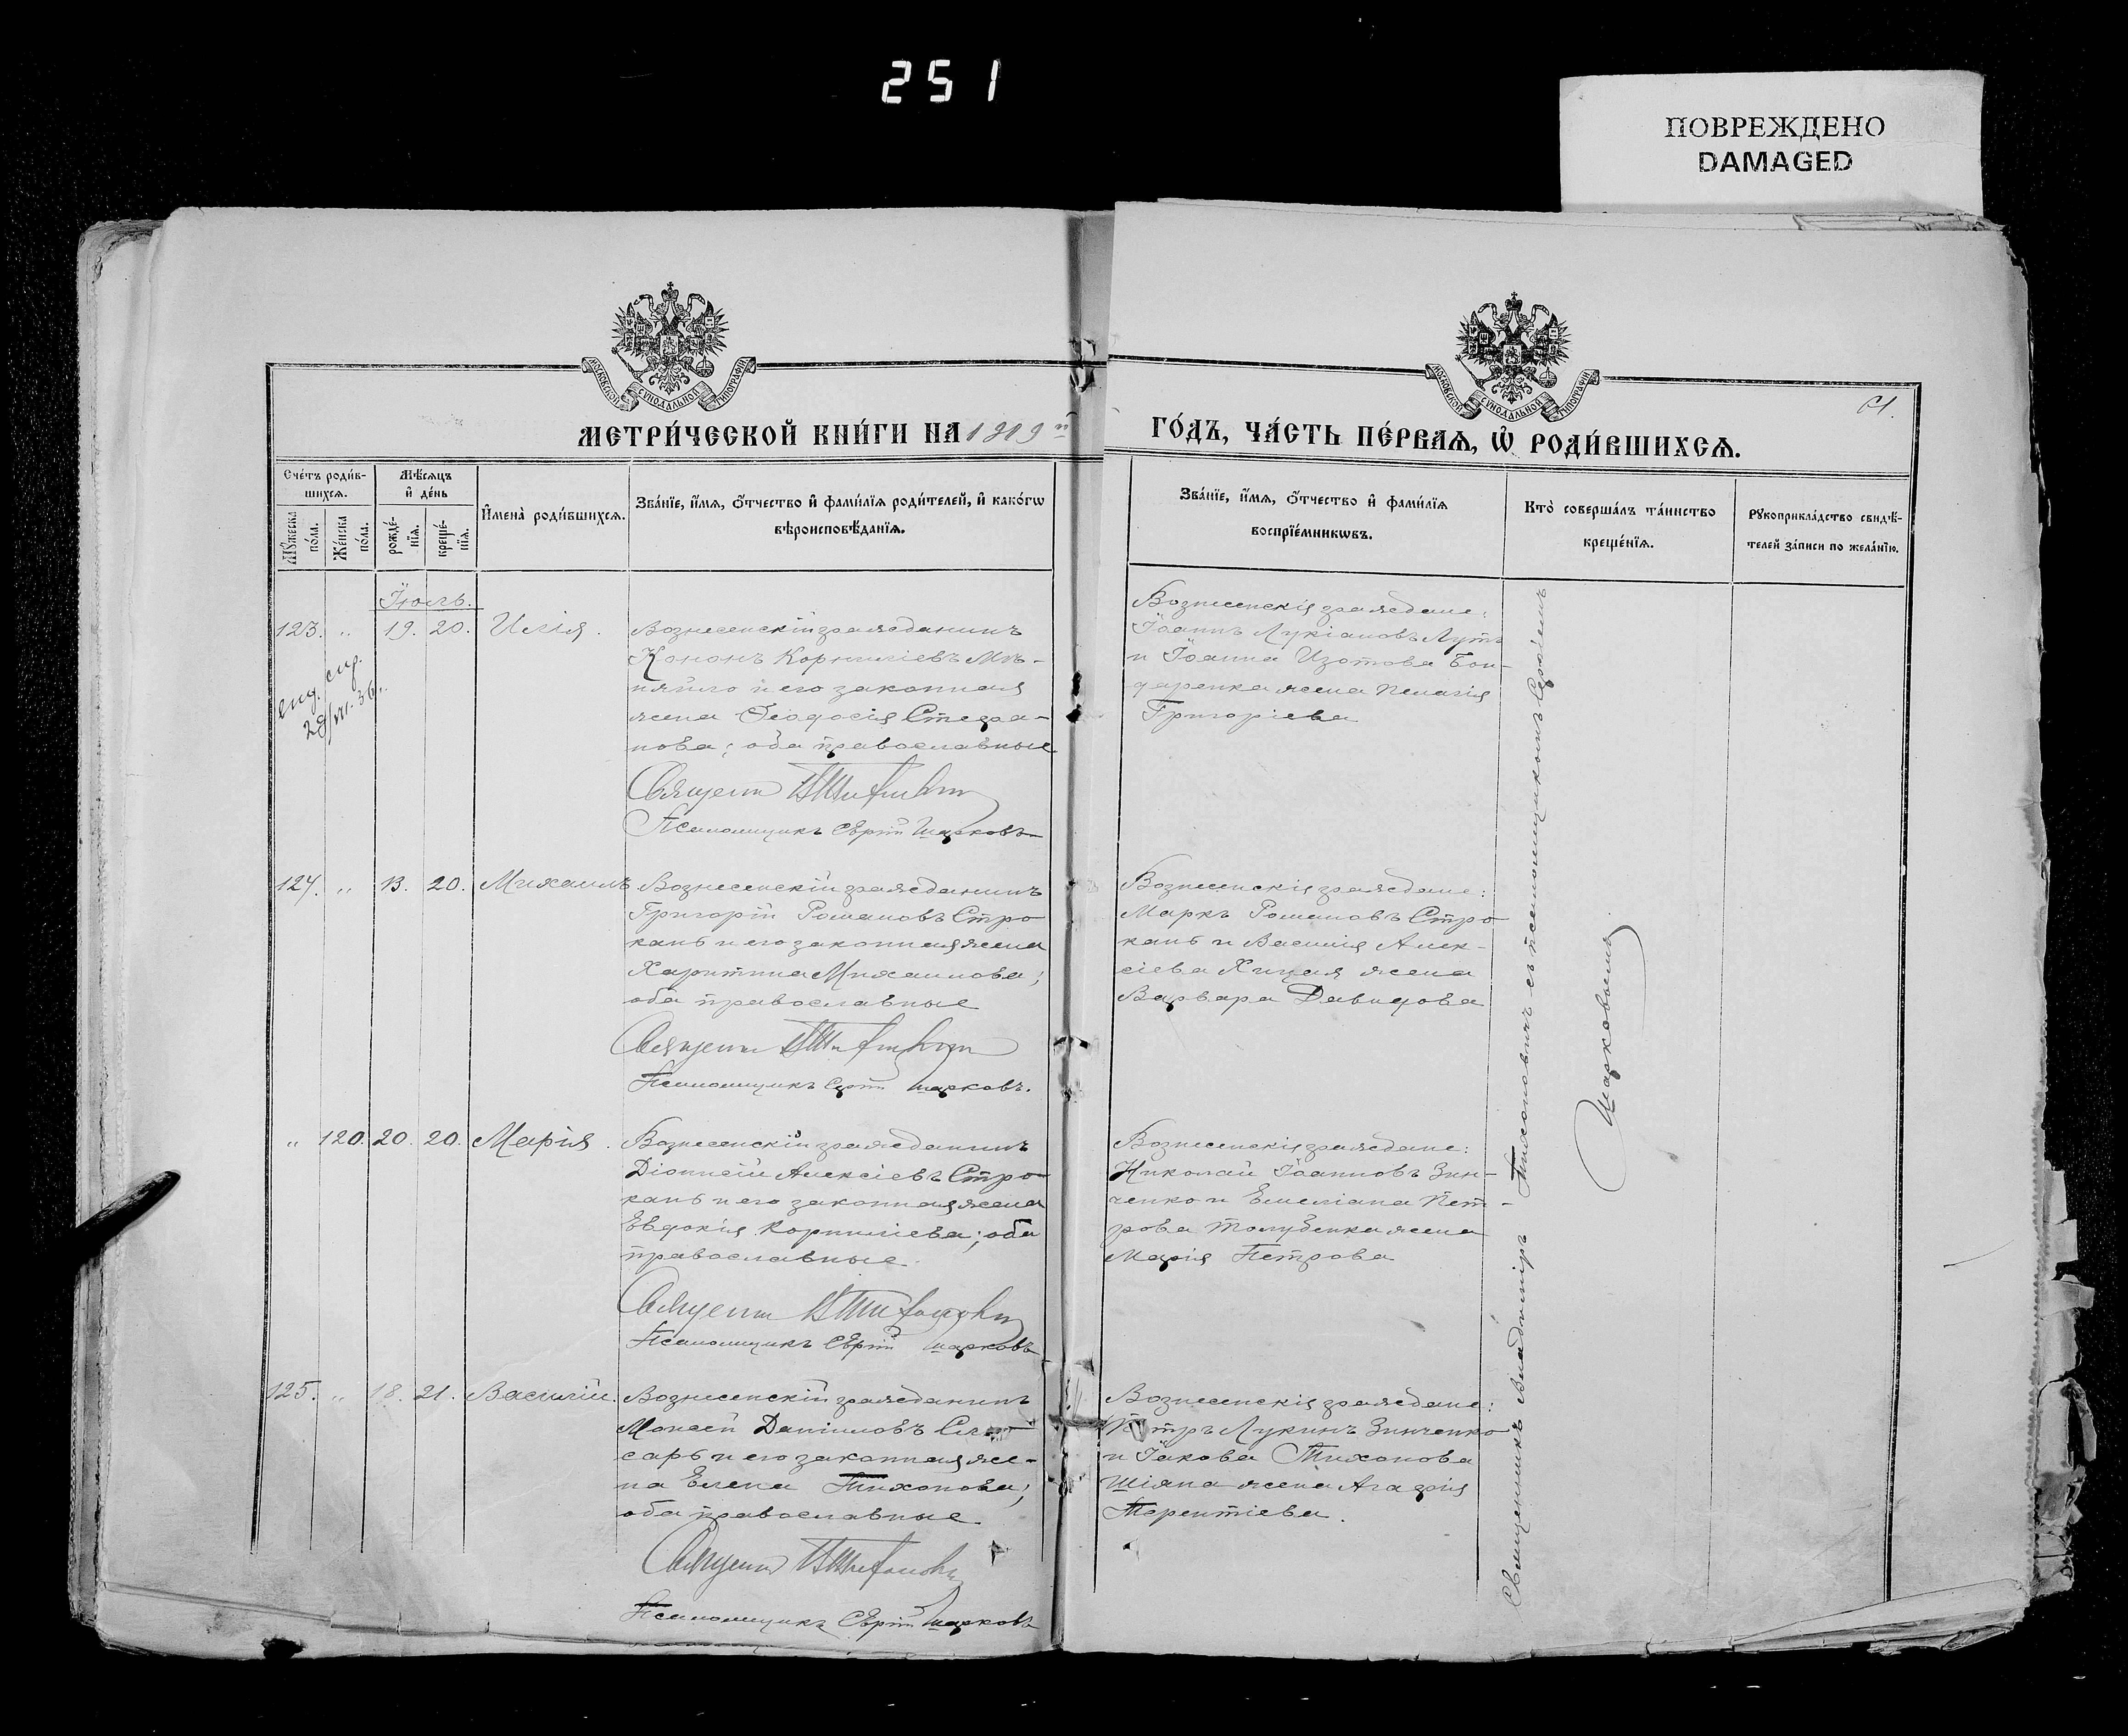 251
ПОВРЕЖДЕНО
DAMAGED
МОСКОВСКОЙ СУНОДАЛЬНОЙ ТИПОГРАФІИ
МОСКОВСКОЙ СУНОДАЛЬНОЙ ТИПОГРАФІИ
МЕТРИ́ЧЕСКОЙ КНИ́ГИ НА 1919й
ГО́ДЪ, ЧА́СТЬ ПЕ́РВАѦ, Ѡ҆ РОДИ́ВШИХСѦ.
Сче́тъ роди́в-
шихсѧ.
Мꙋ́жеска
по́ла.
Же́нска
по́ла.
Мѣ́сѧцъ
и҆ де́нь
рожде́-
нїѧ.
креще́-
нїѧ.
И҆мена̀ роди́вшихсѧ.
Зва́нїе, и҆́мѧ, ѻ҆́тчество и҆ фами́лїѧ роди́телей, и҆ како́гѡ
вѣроисповѣ́данїѧ.
Зва́нїе, и҆́мѧ, ѻ҆́тчество и҆ фами́лїѧ
воспрїе́мникѡвъ.
Кто̀ соверша́лъ та́инство
креще́нїѧ.
Рꙋкоприкла́дство свидѣ́-
телей за́писи по жела́нїю.
Іюль.
123. " 19. 20. Илія.
28/VII. 36
Вознесенскій гражданинъ
Кононъ Корниліевъ Мѣ-
няйло и его законная
жена Ѳеодосія Стефа-
нова; оба православные
Священн
Псаломщикъ Сергій Шарковъ
Вознесенскія граждане:
Іоаннъ Лукіановъ Лутъ
и Іоанна Изотова Бон-
даренка жена Пелагія
Григоріева
124. " 13. 20. Михаилъ
Вознесенскій гражданинъ
Григорій Романовъ Стро
кань и его законная жена
Харитина Михаилова;
оба православные
Священн
Псаломщикъ Сергій Шарковъ.
Вознесенскія граждане:
Маркъ Романовъ Стро
кань и Василія Алек-
сіева жена
Варвара Давидова
" 120. 20. 20. Марія.
Вознесенскій гражданинъ
Діонисій Алексіевъ Стро-
кань и его законная жена
Евдокія Корниліева; оба
православные.
Священн
Псаломщикъ Сергій Шарковъ
Вознесенскія граждане:
Николай Іоанновъ Зин-
ченко и Емеліана Пет-
рова Толубенка жена
Марія Петрова
125. " 18. 21. Василій.
Вознесенскій гражданинъ
Моисей Даніиловъ
саръ и его законная же-
на Елена Тихонова;
оба православные
Священн
Псаломщикъ Сергій Шарковъ
Вознесенскія граждане:
Петръ Лукинъ Зинченко
и Іакова Тихонова
Шіяна жена Агафія
Терентіева.
Священникъ Владиміръ съ псаломщикомъ Сергіемъ
Шарковымъ